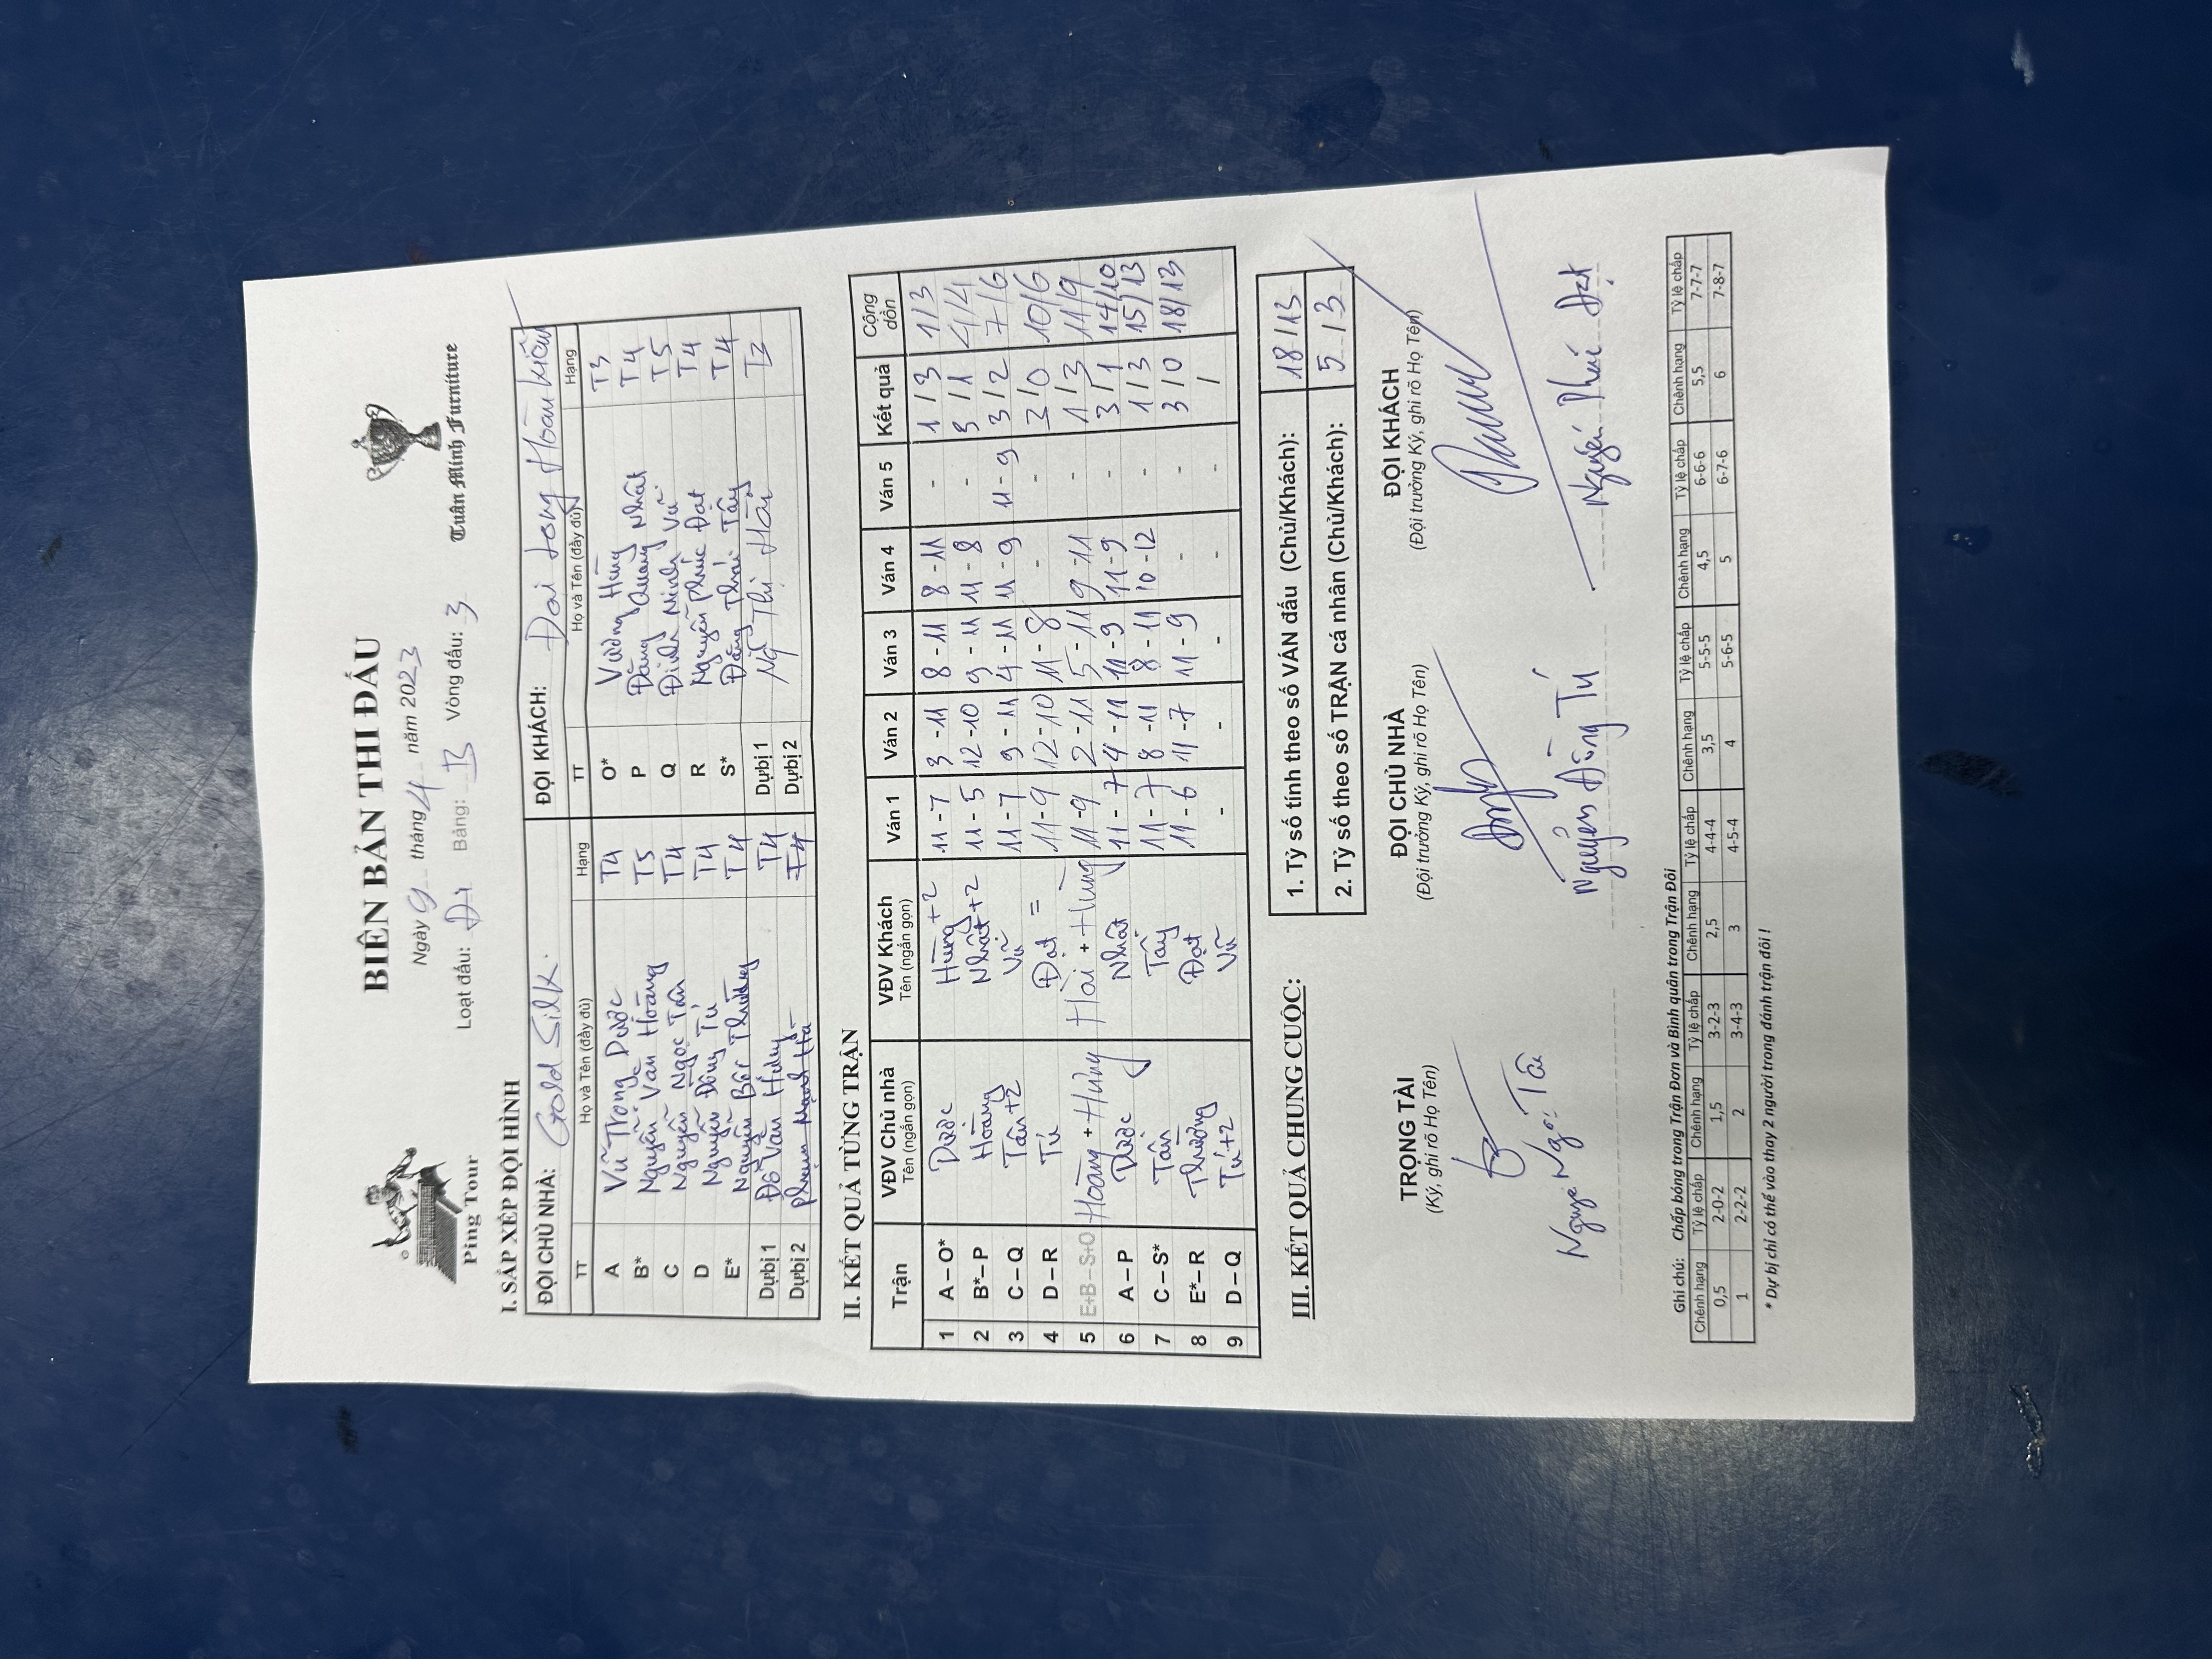 BIÊN BẢN THI ĐẤU
Ngày 9 tháng 4 năm 2023
Loạt đấu: D1 Bảng: B Vòng đấu: 3
Ping Tour
Tuấn Minh Furniture
I. SẮP XẾP ĐỘI HÌNH
ĐỘI CHỦ NHÀ: Gold Silk. ĐỘI KHÁCH: Đại Long Hoàn Kiếm
TT Họ và Tên (đầy đủ) Hạng TT Họ và Tên (đầy đủ) Hạng
A Vũ Trọng Dược T4 O* Vương Hùng T3
B* Nguyễn Văn Hoàng T5 P Đặng Quang Nhật T4
C Nguyễn Ngọc Tân T4 Q Đinh Minh Vũ T5
D Nguyễn Đông Tú T4 R Nguyễn Phúc Đạt T4
E* Nguyễn Bác Thường T4 S* Đặng Thái Tây T4
Dự bị 1 Đỗ Văn T4 Dự bị 1 Ngô Thị Hải T3
Dự bị 2 Phạm Mạnh Hà T4 Dự bị 2
II. KẾT QUẢ TỪNG TRẬN
Trận VĐV Chủ nhà Tên (ngắn gọn) VĐV Khách Tên (ngắn gọn) Ván 1 Ván 2 Ván 3 Ván 4 Ván 5 Kết quả Cộng dồn
1 A – O* Dược Hùng +2 11 - 7 3 - 11 8 - 11 8 - 11 - 1 / 3 1/3
2 B* – P Hoàng Nhật +2 11 - 5 12 - 10 9 - 11 11 - 8 - 3 / 1 4/4
3 C – Q Tân +2 Vũ 11 - 7 9 - 11 4 - 11 11 - 9 11 - 9 3 / 2 7/6
4 D – R Tú Đạt = 11 - 9 12 - 10 11 - 8 - - 3 / 0 10/6
5 E+B – S+O Hoàng + Hùng Hải + Hùng 11 - 9 2 - 11 5 - 11 9 - 11 - 1 / 3 11/9
6 A – P Dược Nhật 11 - 7 4 - 11 11 - 9 11 - 9 - 3 / 1 14/10
7 C – S* Tân Tây 11 - 7 8 - 11 8 - 11 10 - 12 - 1 / 3 15/13
8 E* – R Thường Đạt 11 - 6 11 - 7 11 - 9 - - 3 / 0 18/13
9 D – Q Tú +2 Vũ - - - - - /
III. KẾT QUẢ CHUNG CUỘC:
1. Tỷ số tính theo số VÁN đấu (Chủ/Khách): 18 / 13
2. Tỷ số theo số TRẬN cá nhân (Chủ/Khách): 5 / 3
TRỌNG TÀI ĐỘI CHỦ NHÀ ĐỘI KHÁCH
(Ký, ghi rõ Họ Tên) (Đội trưởng Ký, ghi rõ Họ Tên) (Đội trưởng Ký, ghi rõ Họ Tên)
Nguyễn Đông Tú Nguyễn Phúc Đạt
Ghi chú: Chấp bóng trong Trận Đơn và Bình quân trong Trận Đôi
Chênh hạng Tỷ lệ chấp Chênh hạng Tỷ lệ chấp Chênh hạng Tỷ lệ chấp Chênh hạng Tỷ lệ chấp Chênh hạng Tỷ lệ chấp Chênh hạng Tỷ lệ chấp
0,5 2-0-2 1,5 3-2-3 2,5 4-4-4 3,5 5-5-5 4,5 6-6-6 5,5 7-7-7
1 2-2-2 2 3-4-3 3 4-5-4 4 5-6-5 5 6-7-6 6 7-8-7
* Dự bị chỉ có thể vào thay 2 người trong đánh trận đôi !